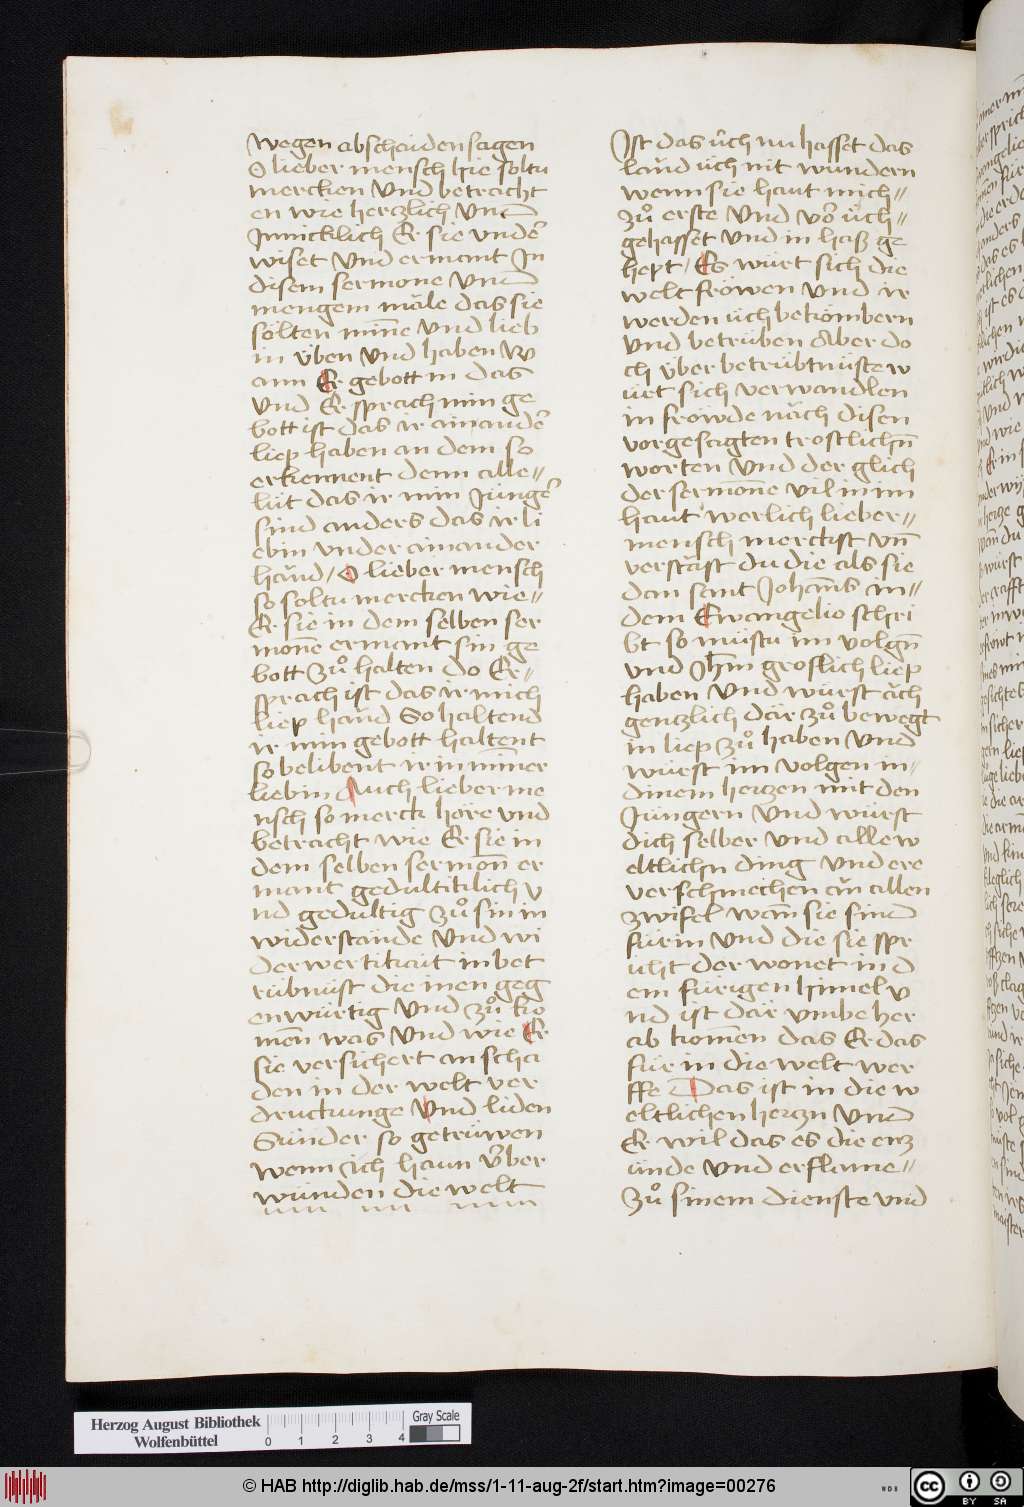 wegen abschaiden sagen
O lieber mensch hie soltu
mercken vnd betracht
en wie hertzlich vnd
Innicklich Er sie vnder
wiset vnd ermant In
disem sermone vnd
mengem mäle das sie
sölten miñe vnd lieb
in v̈ben vnd haben W
ann Er gebott in das
vnd Er sprach min ge
bott ist das ir ainander
liep haben an dem so
erkennent denn alle
lüt das ir min Junger
sind anders das ir li
ebin vnder ainander
händ / O lieber mensch
so soltu mercken wie
Er sie in dem selben ser
mone ermant sin ge
bott zů halten do Er
sprach ist das ir mich
liep händ So haltend
ir min gebott haltent
so belibent ir in miner
liebin Auch lieber me
nsch so merck höre vnd
betracht wie Er sie in
dem selben sermon er
mant gedultiklich v
nd gedultig zů sin in
widerstände vnd wi
derwertikait in bet
rübnüst die inen geg
enwürtig vnd zů ko
men was vnd wie Er
sie versichert an scha
den in der welt ver
druckunge vnd liden
Sünder so getrüwen
wenn ich haun v̈ber
wunden die welt
Ist das üch nu hasset das
länd üch nit wundern
wenn sie haut mich
zů erste vnd vor üch
gehasset vnd in haß ge
hept / Es würt sich die
welt fröwen vnd ir
werden üch bekömbern
vnd betrüben Aber do
ch v̈ber betrübtnüste w
ürt sich verwandlen
in fröwde näch disen
vorgesagten trostlichn
worten vnd der glich
der sermone vil in im
haut werlich lieber
mensch merckst vñ
verstäst du die als sie
dan sant Johans in
dem Ewangelio schri
bt so müstu im volgn
vnd Jhm groslich liep
haben vnd würst äch
gentzlich där zů bewegt
in liep zů haben vnd
würst im volgen in
dinem hertzen mit den
Jüngern vnd würst
dich selber vnd alle w
eltlichn ding vnd ere
verschmechen än allen
zwifel wann sie sind
fürin vnd die sie spr
icht der wonet in d
em fürigen himel v
nd ist där vmbe her
ab komen das Er das
für in die welt wer
ffe Das ist in die w
eltlichen hertzn vnd
Er wil das es die enz
ünde vnd erflame
zů sinem dienste vnd
Herzog August Bibliothek
Wolfenbüttel
0 1 2 3 4
Gray Scale
© HAB http://diglib.hab.de/mss/1-11-aug-2f/start.htm?image=00276
WDB
cc BY SA